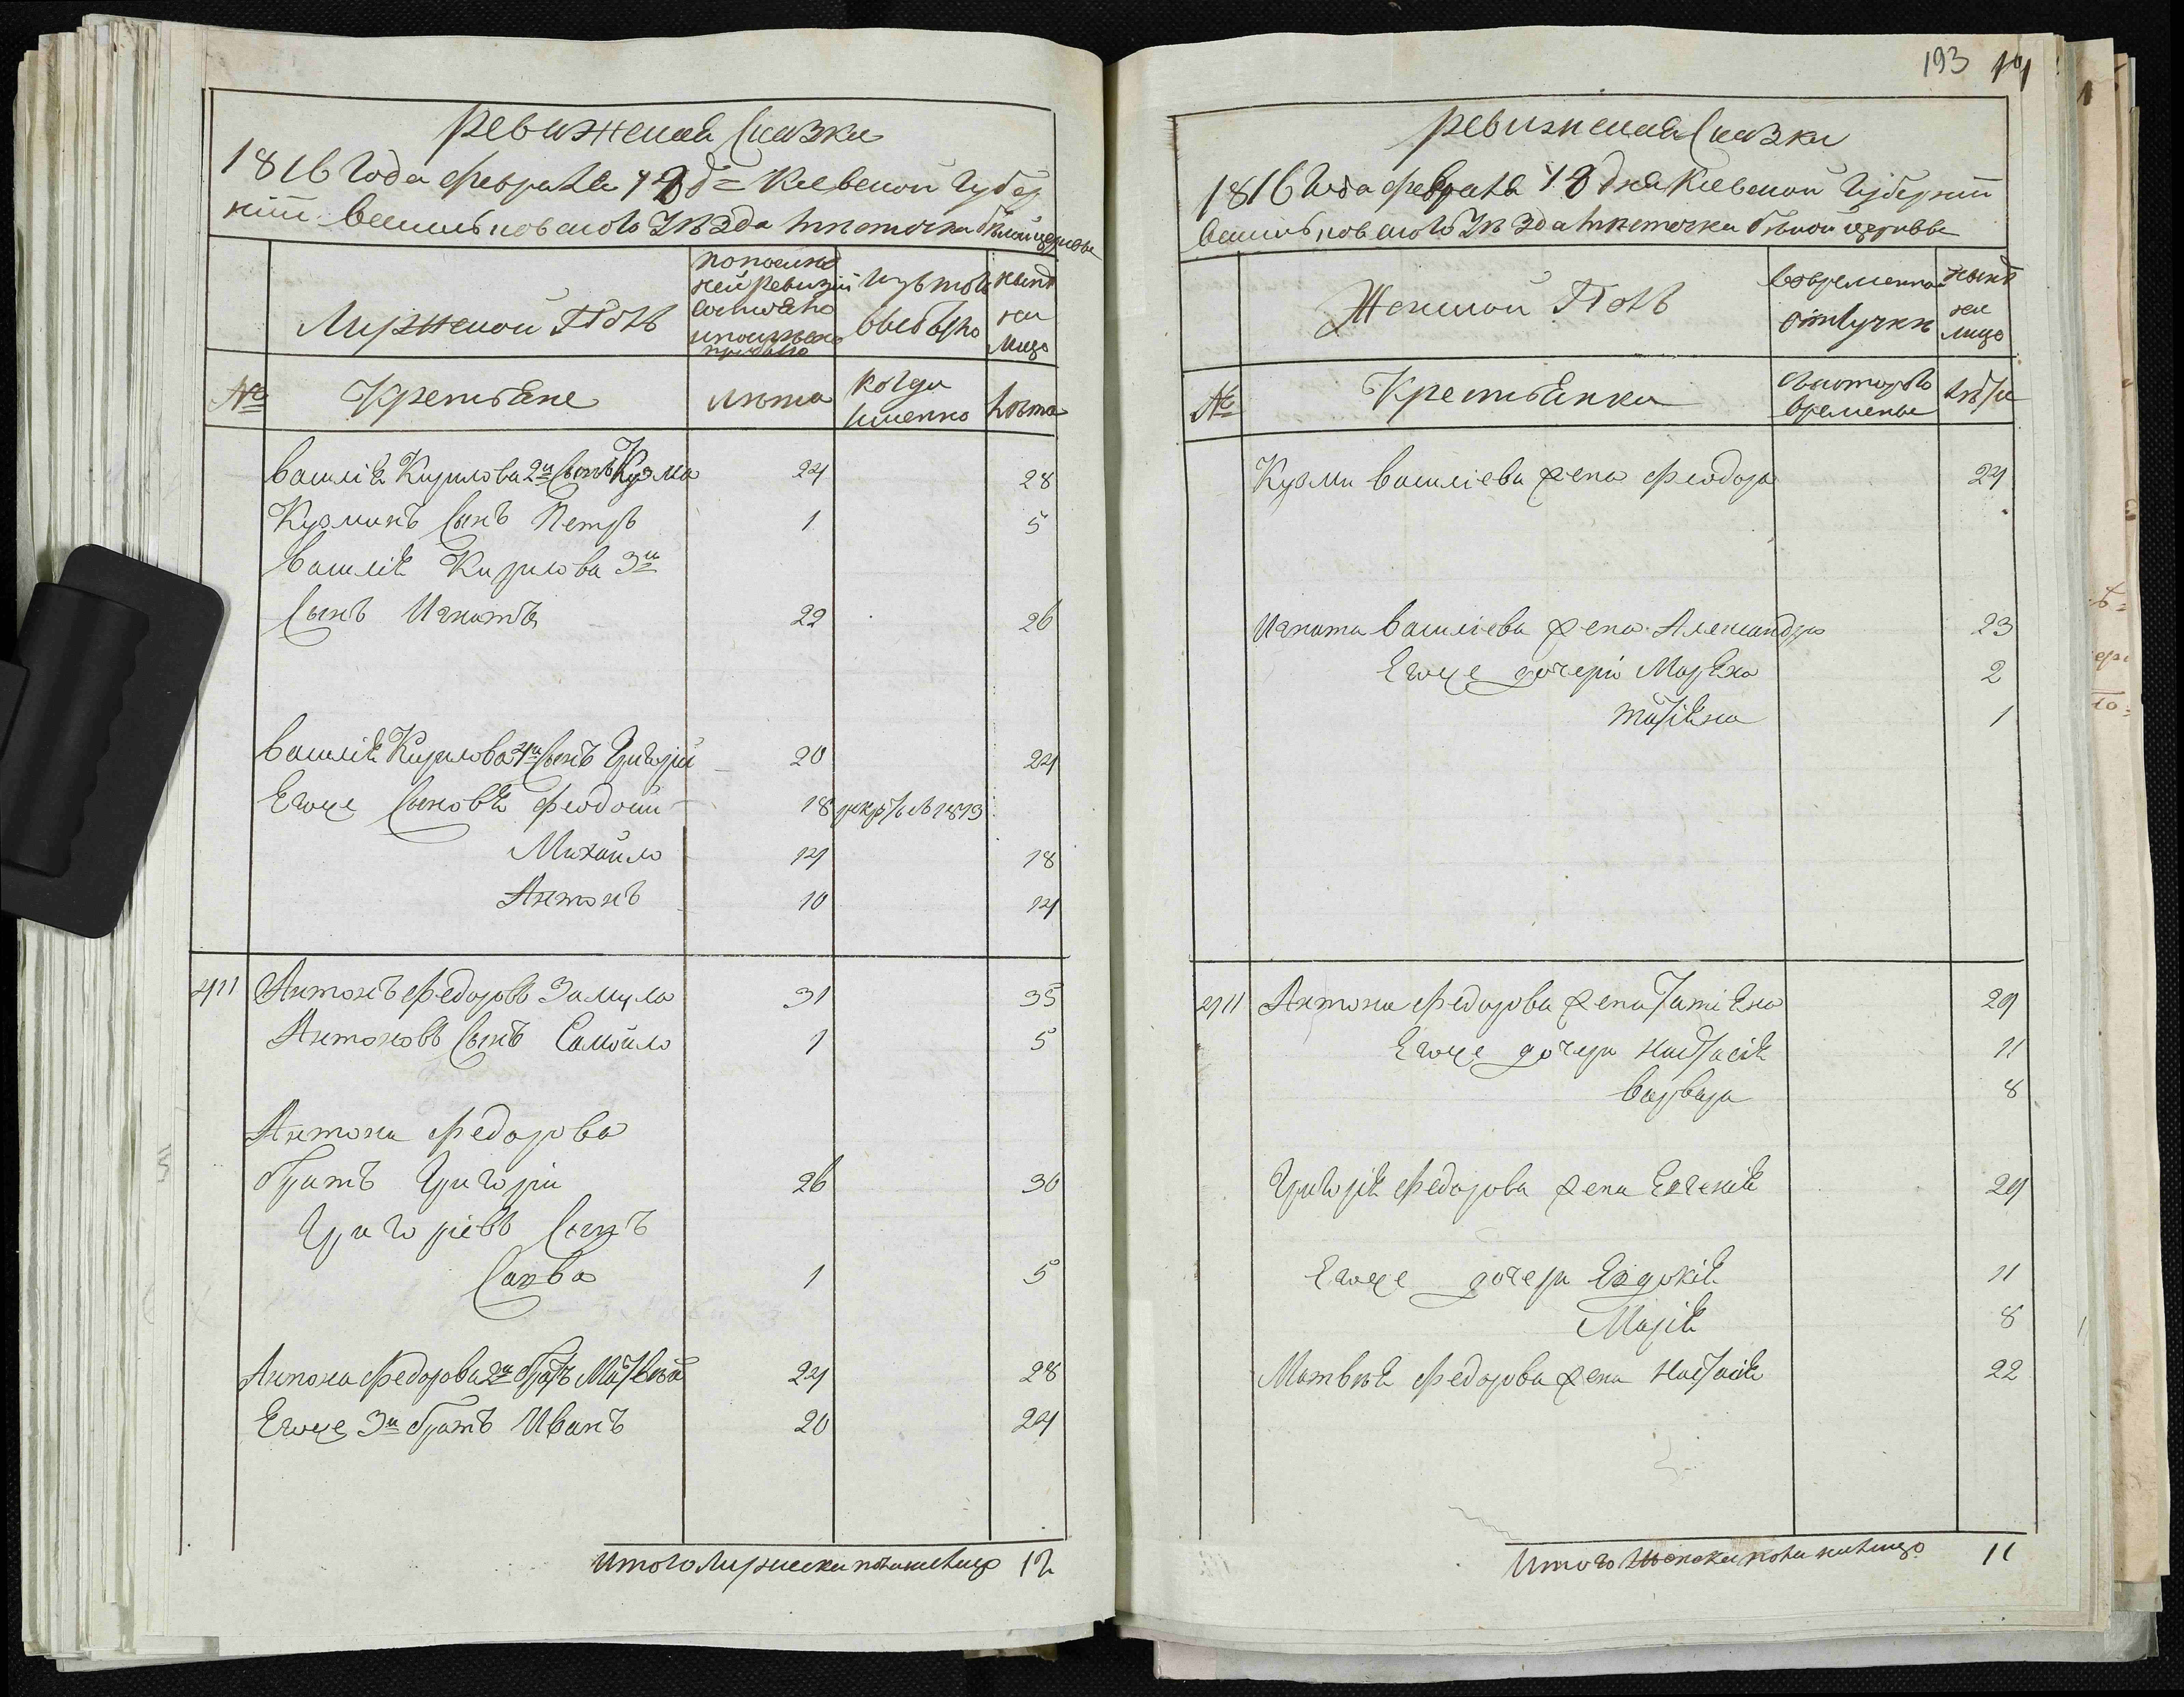 Ревижская Сказка
1816 Года февраля 18 д= Киевской Губер
нии Васильковского Уезда местечка белой церкви
Мужеской Полъ
По последней ревизии состояло и после оной прибыло
Изъ того выбыло
Ныне на лицо
№
Крестьяне
Лета
Когда именно
Лета
Василія Кирилова 2й Сынъ Кузма 24 28
Кузминъ Сынъ Петръ 1 5
Василія Кирилова 3й
Сынъ Игнатъ 22 26
Василія Кирилова 4й Сынъ Григорій 20 24
Егоже Сыновья Феодосій 18 1813
Михайло 14 18
Антонъ 10 14
411 Антонъ Федоровъ Замула 31 35
Антоновъ Сынъ Самойло 1 5
Антона Федорова
братъ Григорій 26 30
Григоріевъ Сынъ
Савва 1 5
Антона Федорова 2й братъ Матвей 24 28
Егоже 3й братъ Иванъ 20 24
Итого Мужеска пола на лицо 12
193
Ревижская Сказка
1816 Года февраля 18 дня Киевской Губернии
Васильковского Уезда местечка белой церкви
Женской Полъ
Во временной отлучке
Ныне на лицо
№
Крестьянки
Съ которого времени
Лета
Кузми Василіева жена Феодора 24
Игната Василіева жена Александра 23
Егоже дочери Марьяна 2
Татіяна 1
411 Антона Федорова жена Татіяна 29
Егоже дочери Настасія 11
Варвара 8
Григорія Федорова жена Евгенія 29
Егоже дочери Евдокія 11
Марія 8
Матвея Федорова жена Настасія 22
Итого Женска пола на лицо 11